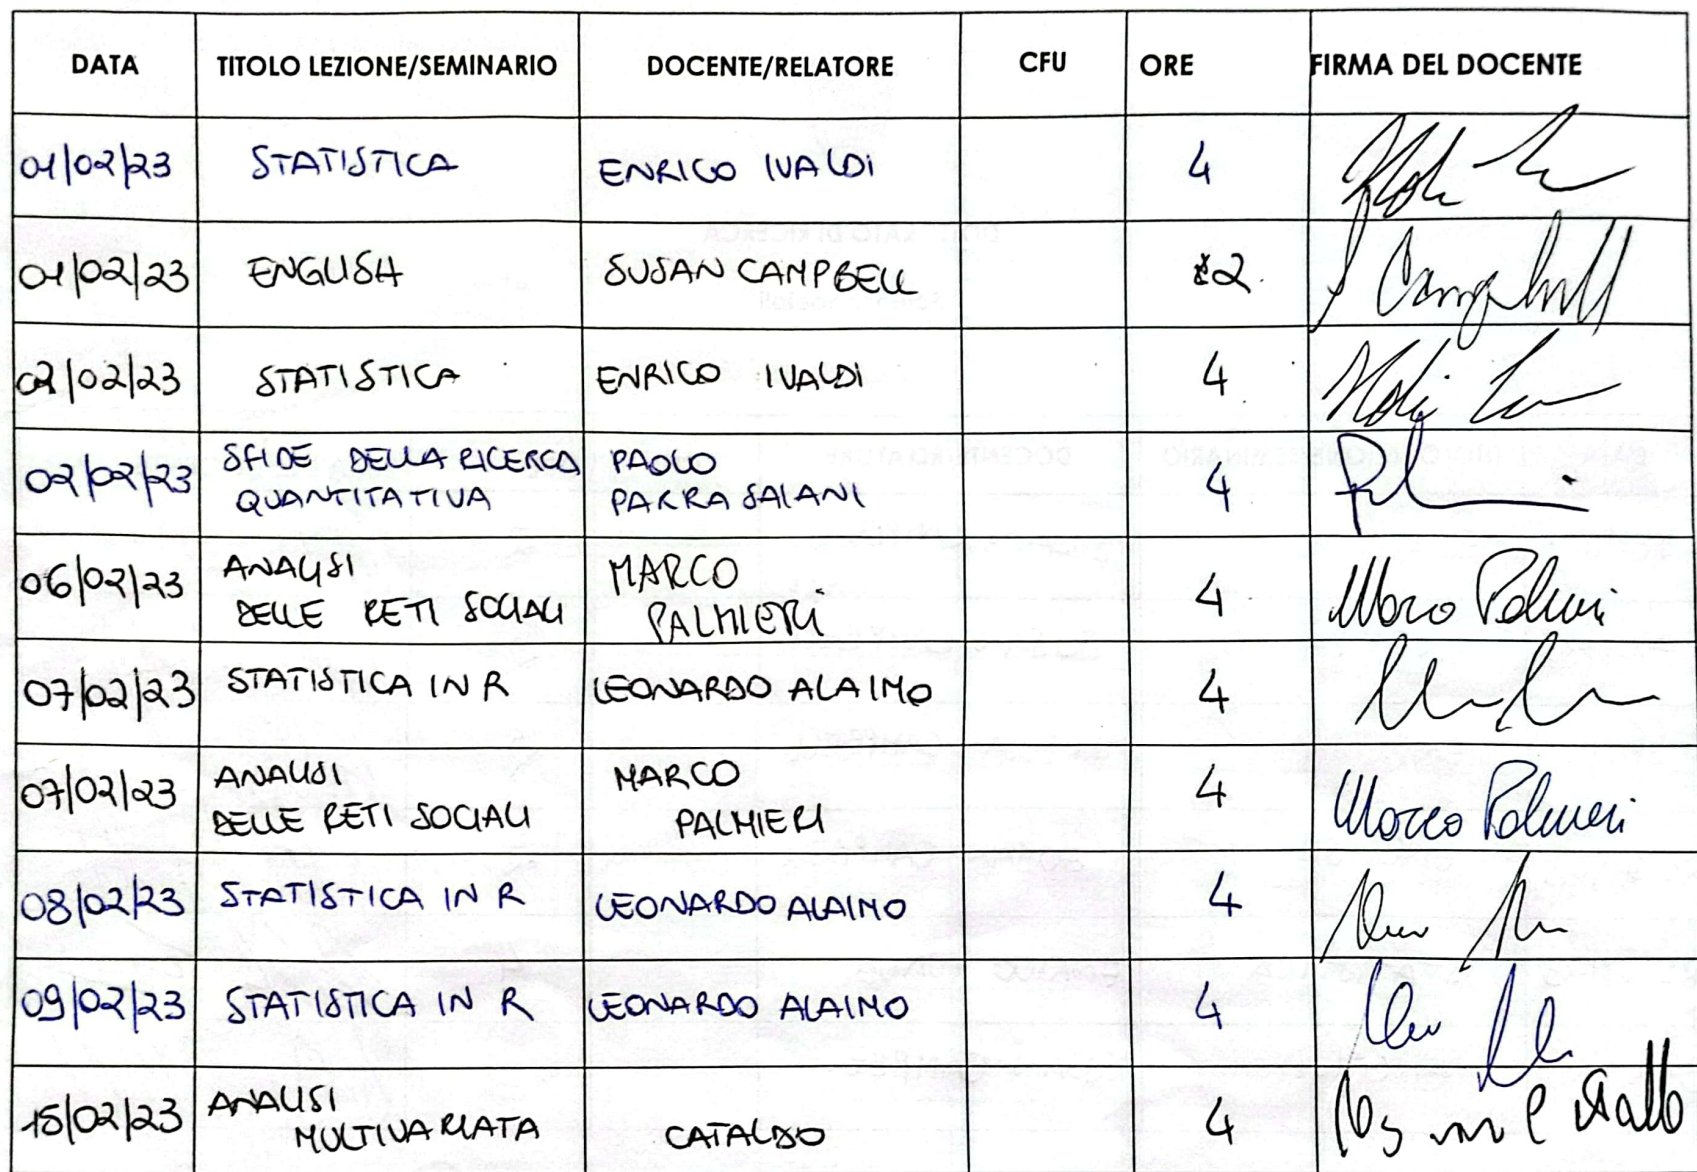 DATA TITOLO LEZIONE/SEMINARIO DOCENTE/RELATORE CFU ORE FIRMA DEL DOCENTE
01/02/23 STATISTICA ENRICO IVALDI 4
01/02/23 ENGLISH SUSAN CAMPBELL 2 S Campbell
02/02/23 STATISTICA ENRICO IVALDI 4
02/02/23 SFIDE DELLA RICERCA PAOLO 4
QUANTITATIVA PARRA SAIANI
06/02/23 ANALISI MARCO 4 Marco Palmieri
DELLE RETI SOCIALI PALMIERI
07/02/23 STATISTICA IN R LEONARDO ALAIMO 4
07/02/23 ANALISI MARCO 4 Marco Palmieri
DELLE RETI SOCIALI PALMIERI
08/02/23 STATISTICA IN R LEONARDO ALAIMO 4
09/02/23 STATISTICA IN R LEONARDO ALAIMO 4
15/02/23 ANALISI 4
MULTIVARIATA CATALDO